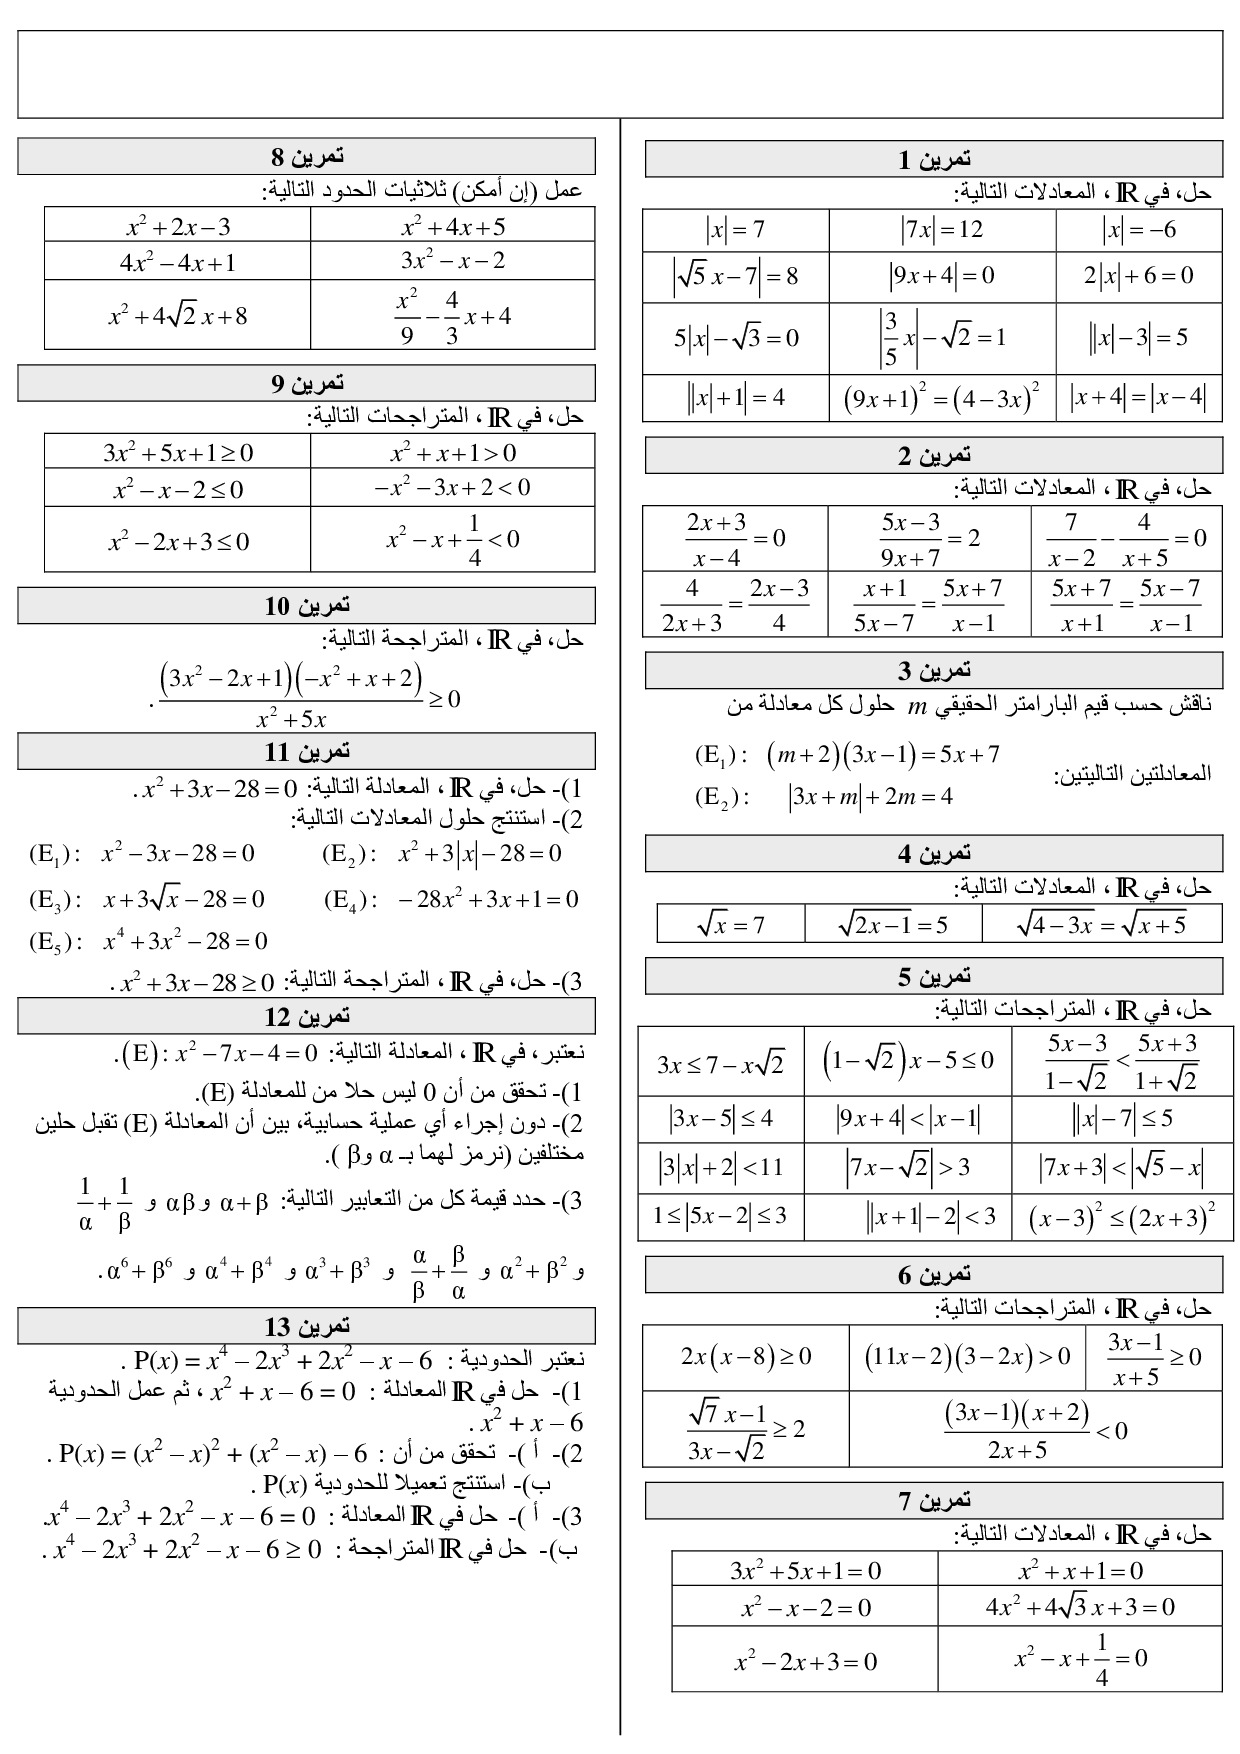 تمرين 1
حل، في ℝ ، المعادلات التالية:
|x| = 7   |7x| = 12   |x| = −6
|√5 x − 7| = 8   |9x + 4| = 0   2|x| + 6 = 0
5|x| − √3 = 0   |3/5 x| − √2 = 1   ||x| − 3| = 5
||x| + 1| = 4   (9x + 1)² = (4 − 3x)²   |x + 4| = |x − 4|
تمرين 2
حل، في ℝ ، المعادلات التالية:
(2x + 3)/(x − 4) = 0   (5x − 3)/(9x + 7) = 2   7/(x − 2) − 4/(x + 5) = 0
4/(2x + 3) = (2x − 3)/4   (x + 1)/(5x − 7) = (5x + 7)/(x − 1)   (5x + 7)/(x + 1) = (5x − 7)/(x − 1)
تمرين 3
ناقش حسب قيم البارامتر الحقيقي m حلول كل معادلة من
المعادلتين التاليتين:
(E₁) : (m + 2)(3x − 1) = 5x + 7
(E₂) : |3x + m| + 2m = 4
تمرين 4
حل، في ℝ ، المعادلات التالية:
√x = 7   √(2x − 1) = 5   √(4 − 3x) = √(x + 5)
تمرين 5
حل، في ℝ ، المتراجحات التالية:
3x ≤ 7 − x√2   (1 − √2)x − 5 ≤ 0   (5x − 3)/(1 − √2) < (5x + 3)/(1 + √2)
|3x − 5| ≤ 4   |9x + 4| < |x − 1|   ||x| − 7| ≤ 5
|3|x| + 2| < 11   |7x − √2| > 3   |7x + 3| < |√5 − x|
1 ≤ |5x − 2| ≤ 3   ||x + 1| − 2| < 3   (x − 3)² ≤ (2x + 3)²
تمرين 6
حل، في ℝ ، المتراجحات التالية:
2x(x − 8) ≥ 0   (11x − 2)(3 − 2x) > 0   (3x − 1)/(x + 5) ≥ 0
(√7 x − 1)/(3x − √2) ≥ 2   (3x − 1)(x + 2)/(2x + 5) < 0
تمرين 7
حل، في ℝ ، المعادلات التالية:
3x² + 5x + 1 = 0   x² + x + 1 = 0
x² − x − 2 = 0   4x² + 4√3 x + 3 = 0
x² − 2x + 3 = 0   x² − x + 1/4 = 0
تمرين 8
عمل (إن أمكن) ثلاثيات الحدود التالية:
x² + 2x − 3   x² + 4x + 5
4x² − 4x + 1   3x² − x − 2
x² + 4√2 x + 8   x²/9 − 4/3 x + 4
تمرين 9
حل، في ℝ ، المتراجحات التالية:
3x² + 5x + 1 ≥ 0   x² + x + 1 > 0
x² − x − 2 ≤ 0   −x² − 3x + 2 < 0
x² − 2x + 3 ≤ 0   x² − x + 1/4 < 0
تمرين 10
حل، في ℝ ، المتراجحة التالية:
(3x² − 2x + 1)(−x² + x + 2)/(x² + 5x) ≥ 0 .
تمرين 11
1)- حل، في ℝ ، المعادلة التالية: x² + 3x − 28 = 0 .
2)- استنتج حلول المعادلات التالية:
(E₁) : x² − 3x − 28 = 0   (E₂) : x² + 3|x| − 28 = 0
(E₃) : x + 3√x − 28 = 0   (E₄) : −28x² + 3x + 1 = 0
(E₅) : x⁴ + 3x² − 28 = 0
3)- حل، في ℝ ، المتراجحة التالية: x² + 3x − 28 ≥ 0 .
تمرين 12
نعتبر، في ℝ ، المعادلة التالية: (E) : x² − 7x − 4 = 0 .
1)- تحقق من أن 0 ليس حلا من للمعادلة (E).
2)- دون إجراء أي عملية حسابية، بين أن المعادلة (E) تقبل حلين
مختلفين (نرمز لهما بـ α و β ).
3)- حدد قيمة كل من التعابير التالية: α + β و αβ و 1/α + 1/β
و α² + β² و α/β + β/α و α³ + β³ و α⁴ + β⁴ و α⁶ + β⁶ .
تمرين 13
نعتبر الحدودية : P(x) = x⁴ – 2x³ + 2x² – x – 6 .
1)- حل في ℝ المعادلة : x² + x – 6 = 0 ، ثم عمل الحدودية
x² + x – 6 .
2)- أ )- تحقق من أن : P(x) = (x² – x)² + (x² – x) – 6 .
ب)- استنتج تعميلا للحدودية P(x) .
3)- أ )- حل في ℝ المعادلة : x⁴ – 2x³ + 2x² – x – 6 = 0.
ب)- حل في ℝ المتراجحة : x⁴ – 2x³ + 2x² – x – 6 ≥ 0 .